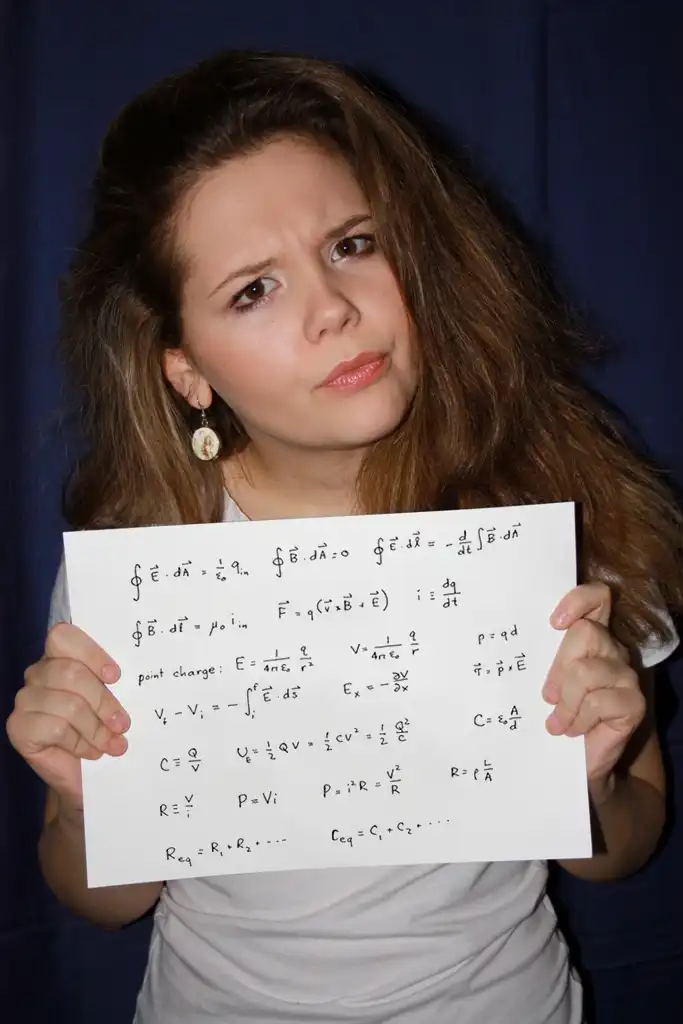 ∮ E⃗ · dA⃗ = 1/ε₀ qᵢₙ   ∮ B⃗ · dA⃗ = 0   ∮ E⃗ · dl⃗ = - d/dt ∫ B⃗ · dA⃗
∮ B⃗ · dl⃗ = μ₀ iᵢₙ   F⃗ = q(v⃗ × B⃗ + E⃗)   i ≡ dq/dt
point charge: E = 1/4πε₀ q/r²   V = 1/4πε₀ q/r   p = qd
V_f - V_i = - ∫ᵢᶠ E⃗ · ds⃗   Eₓ = - ∂V/∂x   τ⃗ = p⃗ × E⃗
C ≡ Q/V   U_E = 1/2 QV = 1/2 CV² = 1/2 Q²/C   C = ε₀ A/d
R ≡ V/i   P = Vi   P = i²R = V²/R   R = ρ L/A
R_eq = R₁ + R₂ + ···   C_eq = C₁ + C₂ + ···